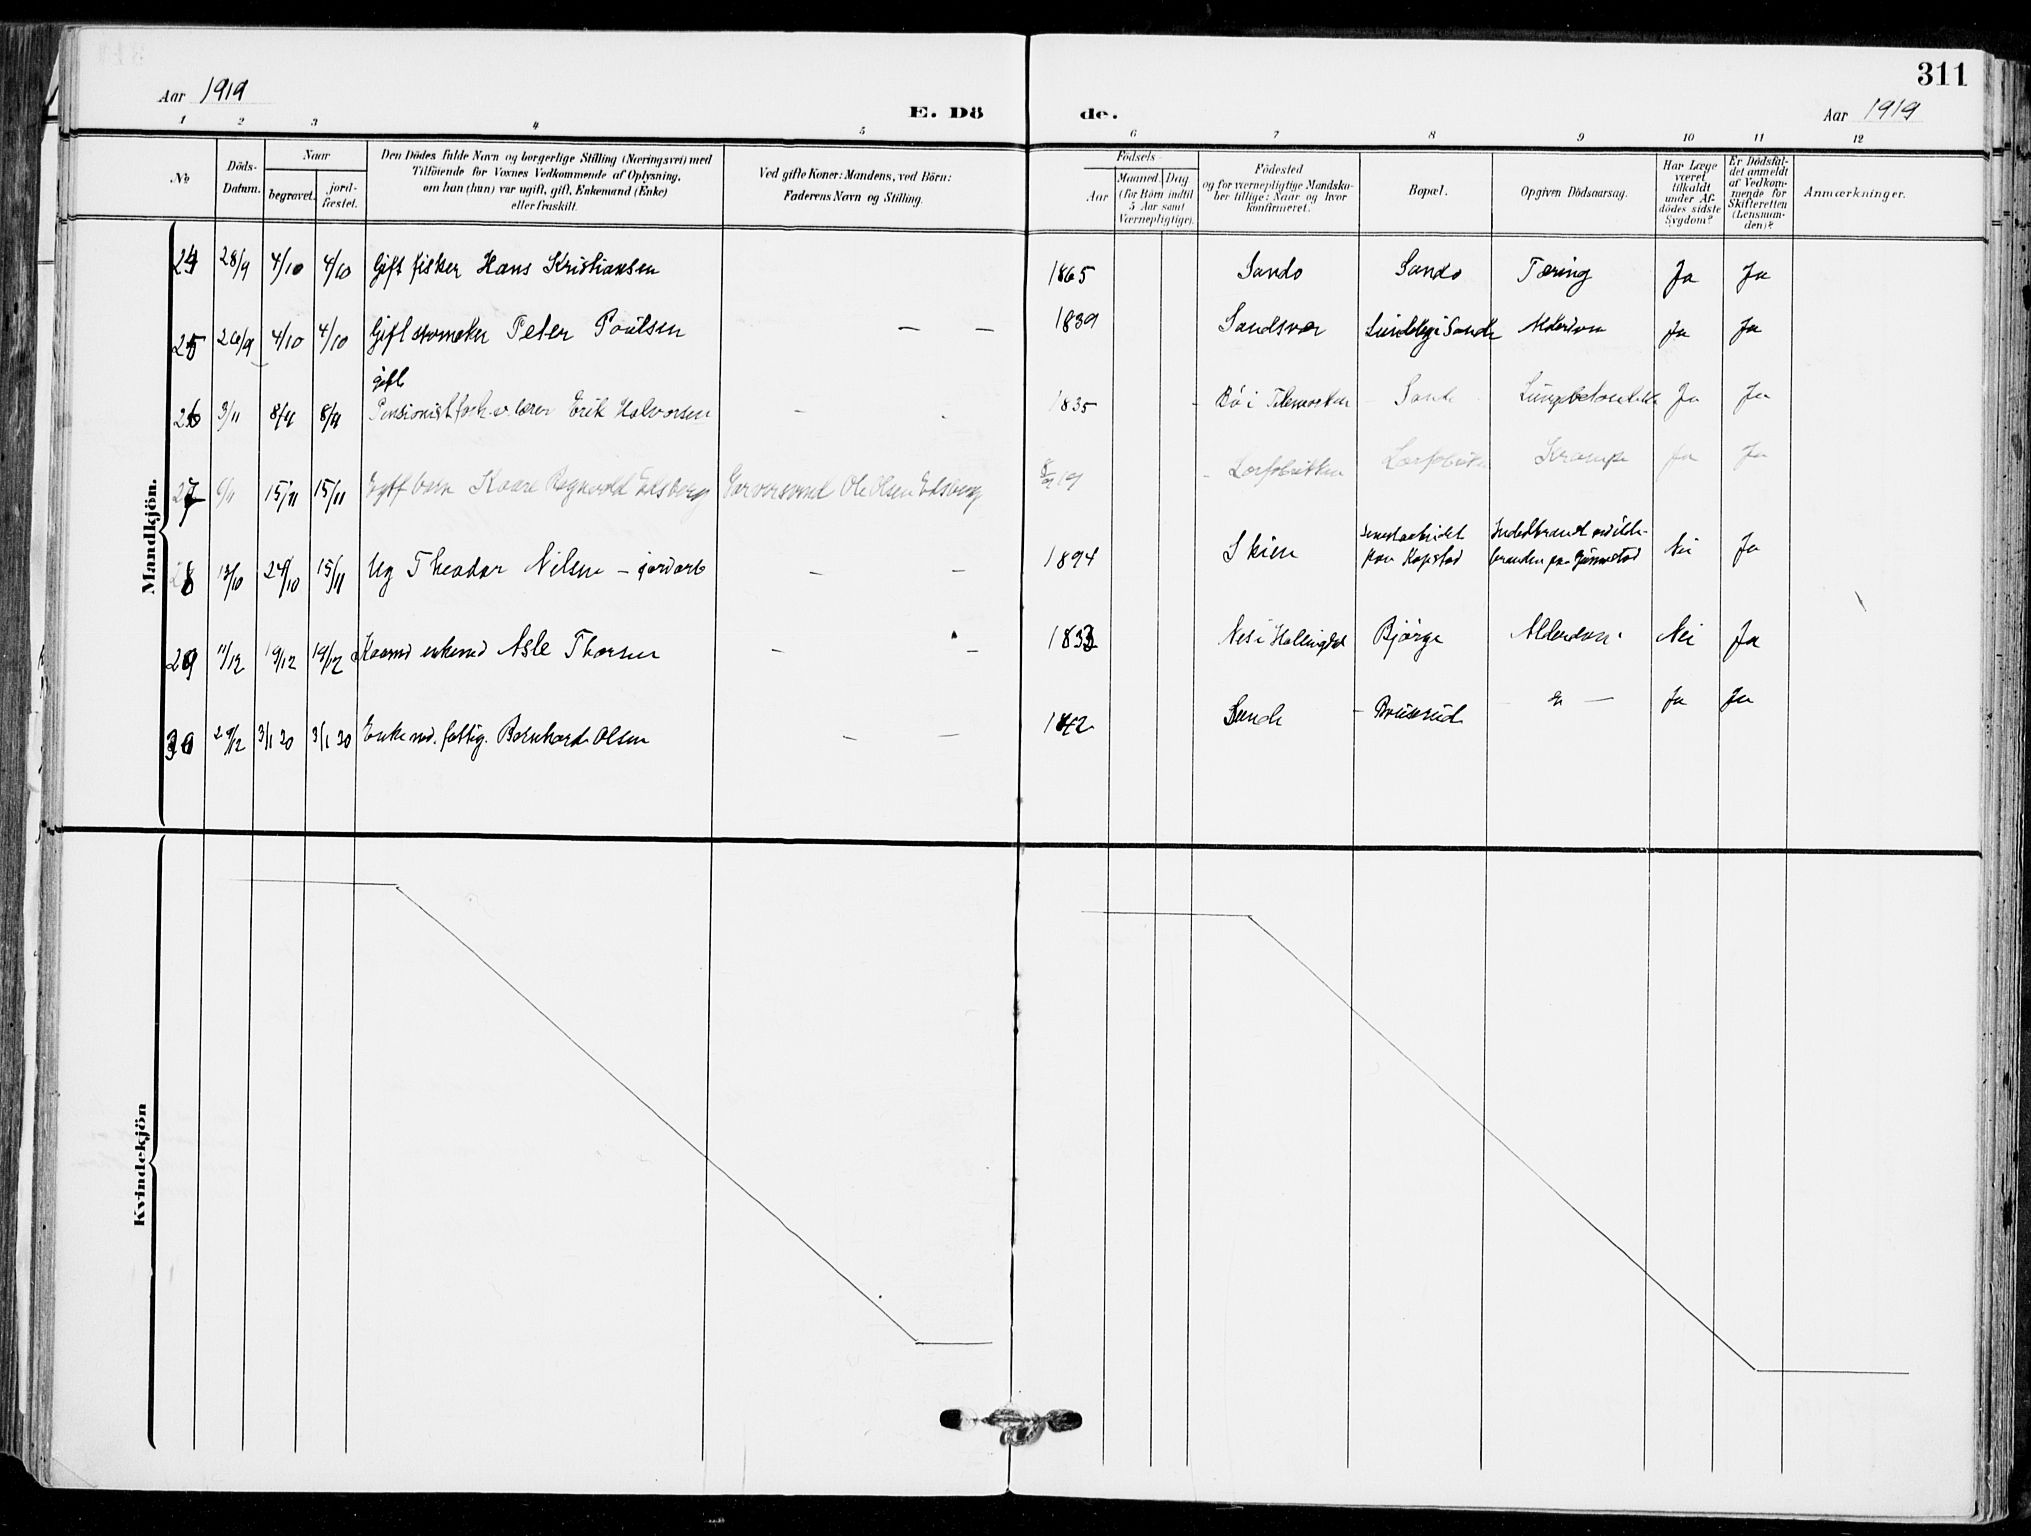 311
Aar 1919
E. Dö
de.
Aar 1919
1 2 3 4 5 6 7 8 9 10 11 12
No
Döds-Datum.
Naar
begravet.
jord-fæstet.
Den Dödes fulde Navn og borgerlige Stilling (Næringsvei) med
Tilföiende for Voxnes Vedkommende af Oplysning,
om han (hun) var ugift, gift, Enkemand (Enke)
eller fraskilt.
Ved gifte Koner: Mandens, ved Börn:
Faderens Navn og Stilling.
Födsels-
Aar
Maaned. Dag
(for Börn indtil
5 Aar samt
Værnepligtige).
Födested
og for værnepligtige Mandska-
ber tillige: Naar og hvor
konfirmeret.
Bopæl.
Opgiven Dödsaarsag.
Har Læge
været
tilkaldt
under Af-
dödes sidste
Sygdom?
Er Dödsfal-
det anmeldt
af Vedkom-
mende for
Skifteretten
(Lensman-
den)?
Anmærkninger.
Mandkjön.
24 28/9 4/10 4/10 Gift fisker Hans Kristiansen 1865 Sande Sande Tæring Ja Ja
25 26/9 4/10 4/10 Gift Peter Poulsen — — 1839 Sandsvær Alderdom Ja Ja
gift
26 3/11 8/11 8/11 Pensionist Erik Halvorsen — 1835 Bö i Telemarken Sande Ja Ja
27 6/11 15/11 15/11 Kaare Ragnvald Edsberg Garversvend Ole Olsen Edsberg 19 Krampe Ja Ja
28 13/10 24/10 15/11 Ug Theodor Nilsen — jordarb — — 1894 Skien Nei Ja
29 11/12 19/12 19/12 enkemd Asle Thorsen — — 1833 Nes i Hallingdal Bjørge Alderdom Nei Ja
30 29/12 3/1 20 3/1 20 Enkemd. fattig. Bernhard Olsen — — 1842 Sande Bruserud — Ja Ja
Kvindekjön